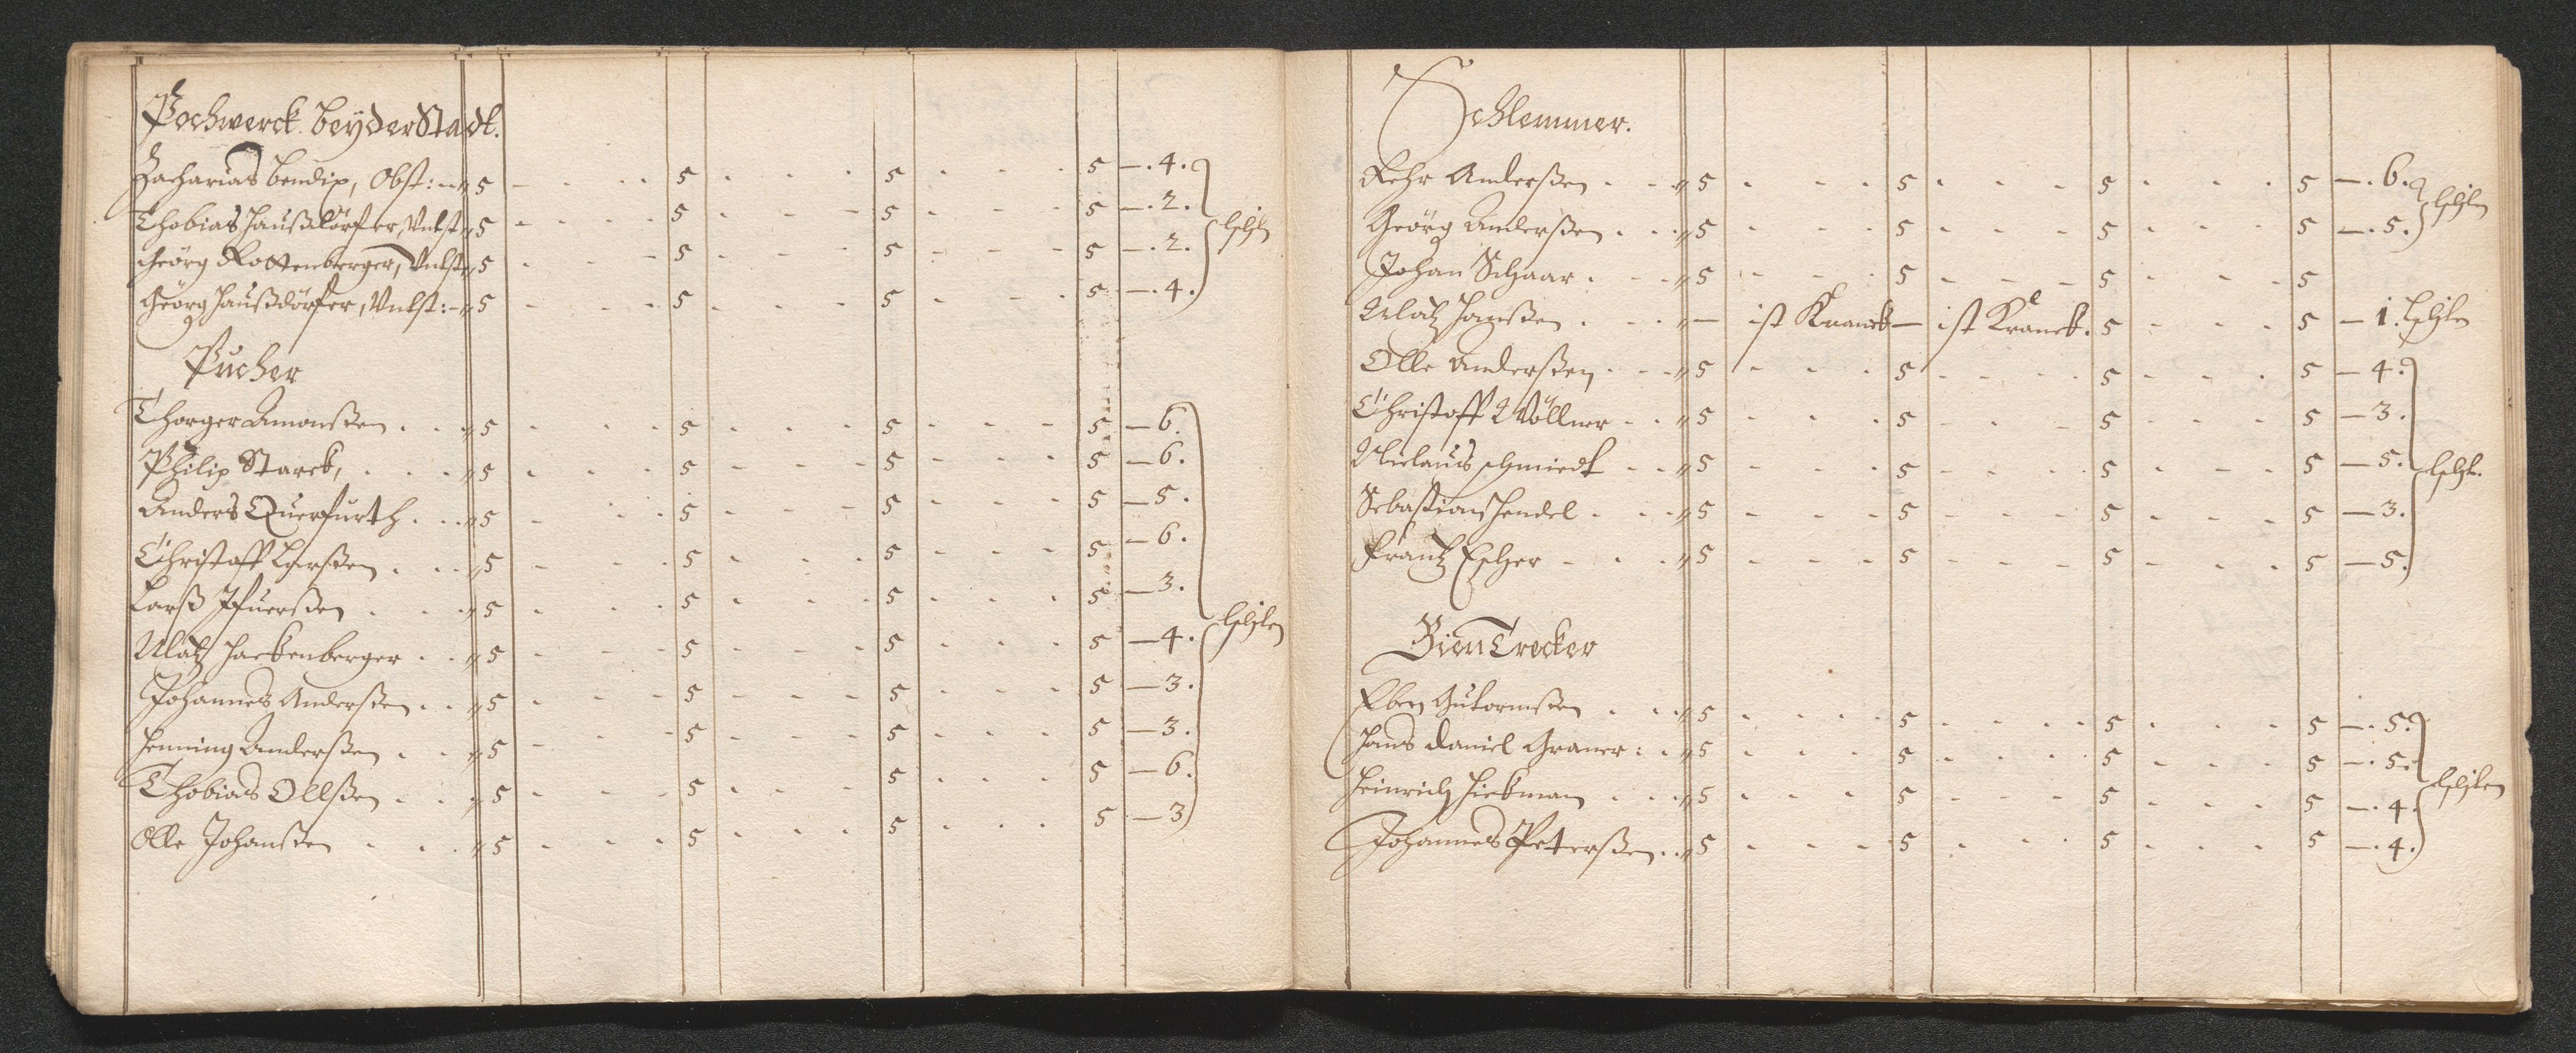 Pochwerck beÿ der Stadt.
Zacharias Bendix, Obst: 5 - - - 5 - - - 5 - - - 5 —. 4.
Thobias Haußdörfer, Vnbst 5 - - - 5 - - - 5 - - - 5 —. 2.
Geörg Rottenberger, Vnbst 5 - - - 5 - - - 5 - - - 5 —. 2.
Geörg Haußdörfer, Vnbst: 5 - - - 5 - - - 5 - - - 5 —. 4.
Pucher
Thorger Amonßen 5 - - - 5 - - - 5 - - - 5 — 6.
Philip Starck, 5 - - - 5 - - - 5 - - - 5 — 6.
Anders Querfurth 5 - - - 5 - - - 5 - - - 5 — 5.
Christoff Larßen 5 - - - 5 - - - 5 - - - 5 — 6.
Larß 5 - - - 5 - - - 5 - - - 5 — 3.
Matz Hackenberger 5 - - - 5 - - - 5 - - - 5 — 4.
Johannes Anderßen 5 - - - 5 - - - 5 - - - 5 — 3.
Henning Anderßen 5 - - - 5 - - - 5 - - - 5 — 3.
Thobias Ollßen 5 - - - 5 - - - 5 - - - 5 — 6.
Olle Johanßen 5 - - - 5 - - - 5 - - - 5 — 3
Schlemmer.
Pehr Anderßen 5 - - - 5 - - - 5 - - - 5 —. 6.
Geörg Anderßen 5 - - - 5 - - - 5 - - - 5 —. 5.
Johan Schaar 5 - - - 5 - - - 5 - - - 5
Matz Hanßen — ist Kranck — ist Kranck. 5 - - - 5 — 1.
Olle Anderßen 5 - - - 5 - - - 5 - - - 5 — 4.
Christoff Wöllner 5 - - - 5 - - - 5 - - - 5 — 3.
Nielaus schmiedt 5 - - - 5 - - - 5 - - - 5 — 5.
Sebastian Hendel 5 - - - 5 - - - 5 - - - 5 — 3.
Frantz Escher 5 - - - 5 - - - 5 - - - 5 — 5.
Bien Trecker
Eben Gutormßen 5 - - - 5 - - - 5 - - - 5 —. 5.
Hans Daniel Graner: 5 - - - 5 - - - 5 - - - 5 —. 5.
Heinrich Hickman 5 - - - 5 - - - 5 - - - 5 —. 4.
Johannes Peterßen 5 - - - 5 - - - 5 - - - 5 —. 4.